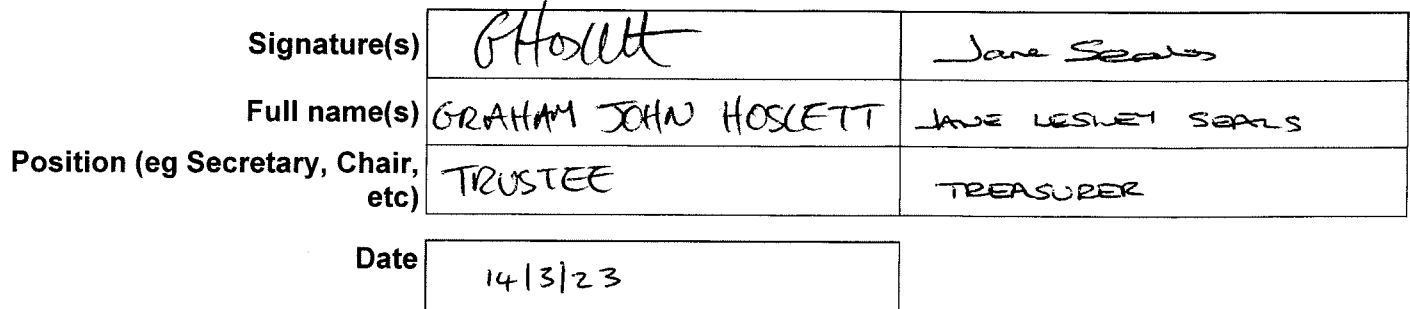 Signature(s) GHoslett Jane Seals
Full name(s) GRAHAM JOHN HOSLETT JANE LESLEY SEALS
Position (eg Secretary, Chair, etc) TRUSTEE TREASURER
Date 14/3/23